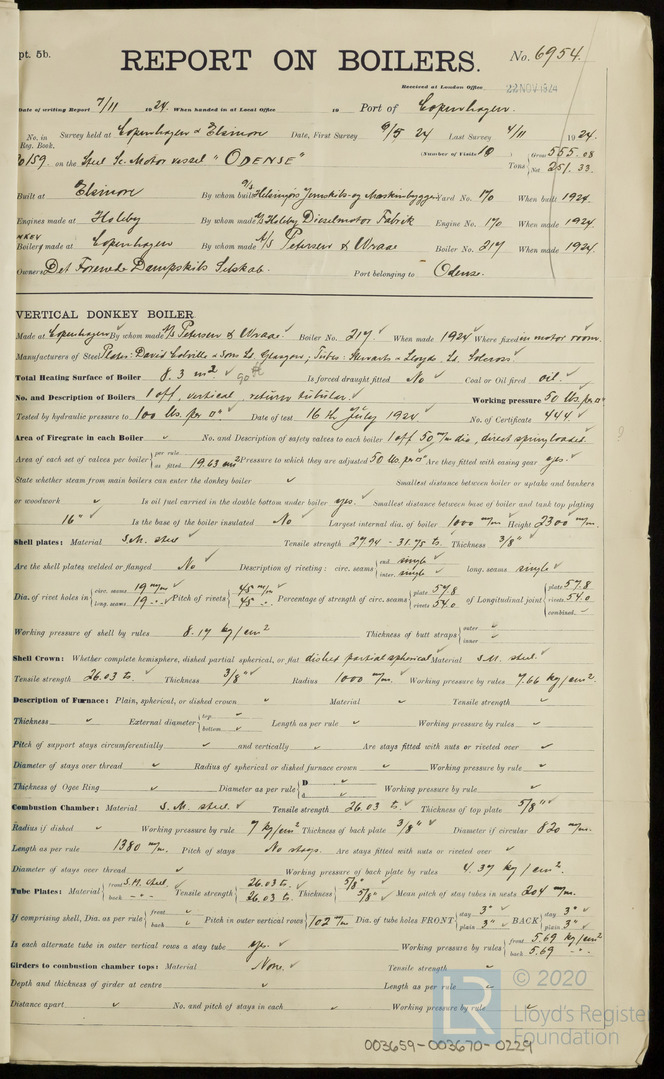 pt. 5b.
REPORT ON BOILERS.
No. 6954.
Received at London Office 22 NOV 1924
Date of writing Report 7/11 1924 When handed in at Local Office 19 Port of Copenhagen.
No. in Reg. Book. Survey held at Copenhagen & Elsinore Date, First Survey 9/5 24 Last Survey 4/11 1924.
(Number of Visits 10 )
on the Steel Sc. Motor vessel "ODENSE" Tons { Gross 555.08 Net 251.33.
Built at Elsinore By whom built A/S Helsingørs Jernskibs- og Maskinbyggeri Yard No. 170 When built 1924.
Engines made at Holeby By whom made A/S Holeby Dieselmotor Fabrik Engine No. 170 When made 1924.
Boilers made at Copenhagen By whom made A/S Petersen & Wraae Boiler No. 217 When made 1924.
Owners Det Forenede Dampskibs Selskab. Port belonging to Odense.
VERTICAL DONKEY BOILER
Made at Copenhagen By whom made A/S Petersen & Wraae. Boiler No. 217. When made 1924 Where fixed in motor room.
Manufacturers of Steel Plates: David Colville & Sons Ld. Glasgow; Tubes: Stewarts & Lloyds, Ld.
Total Heating Surface of Boiler 8.3 m² 90 Is forced draught fitted No Coal or Oil fired oil.
No. and Description of Boilers 1 off, vertical, return tubular. Working pressure 50 lbs. per □"
Tested by hydraulic pressure to 100 lbs. per □" Date of test 16th July 1924 No. of Certificate 444.
Area of Firegrate in each Boiler No. and Description of safety valves to each boiler 1 off 50 m/m dia, direct spring loaded.
Area of each set of valves per boiler { per rule as fitted 19.63 cm² Pressure to which they are adjusted 50 lbs. per □" Are they fitted with easing gear yes.
State whether steam from main boilers can enter the donkey boiler Smallest distance between boiler or uptake and bunkers
or woodwork Is oil fuel carried in the double bottom under boiler yes. Smallest distance between base of boiler and tank top plating
16" Is the base of the boiler insulated No Largest internal dia. of boiler 1000 m/m Height 2300 m/m.
Shell plates: Material S.M. steel Tensile strength 27.94 - 31.75 ts. Thickness 3/8"
Are the shell plates welded or flanged No Description of riveting: circ. seams { end single inter. single long. seams single
Dia. of rivet holes in { circ. seams 19 m/m long. seams 19 Pitch of rivets { 45 m/m 45 Percentage of strength of circ. seams { plate 57.8 rivets 54.0 of Longitudinal joint { plate 57.8 rivets 54.0 combined.
Working pressure of shell by rules 8.17 kg/cm² Thickness of butt straps { outer inner
Shell Crown: Whether complete hemisphere, dished partial spherical, or flat dished partial spherical Material S.M. steel.
Tensile strength 26.03 ts. Thickness 3/8" Radius 1000 m/m. Working pressure by rules 7.66 kg/cm².
Description of Furnace: Plain, spherical, or dished crown Material Tensile strength
Thickness External diameter { top bottom Length as per rule Working pressure by rules
Pitch of support stays circumferentially and vertically Are stays fitted with nuts or riveted over
Diameter of stays over thread Radius of spherical or dished furnace crown Working pressure by rule
Thickness of Ogee Ring Diameter as per rule { D d Working pressure by rule
Combustion Chamber: Material S.M. steel. Tensile strength 26.03 ts. Thickness of top plate 5/8"
Radius if dished Working pressure by rule 7 kg/cm² Thickness of back plate 3/8" Diameter if circular 820 m/m.
Length as per rule 1380 m/m. Pitch of stays No stays. Are stays fitted with nuts or riveted over
Diameter of stays over thread Working pressure of back plate by rules 4.37 kg/cm².
Tube Plates: Material { front S.M. steel back Tensile strength { 26.03 ts. 26.03 ts. Thickness { 5/8" 5/8" Mean pitch of stay tubes in nests 204 m/m.
If comprising shell, Dia. as per rule { front back Pitch in outer vertical rows 102 m/m Dia. of tube holes FRONT { stay 3" plain 3" BACK { stay 3" plain 3"
Is each alternate tube in outer vertical rows a stay tube yes. Working pressure by rules { front 5.69 kg/cm² back 5.69
Girders to combustion chamber tops: Material None. Tensile strength
Depth and thickness of girder at centre Length as per rule
Distance apart No. and pitch of stays in each Working pressure by rule
LR © 2020
Lloyd's Register
Foundation
003659-003670-0229